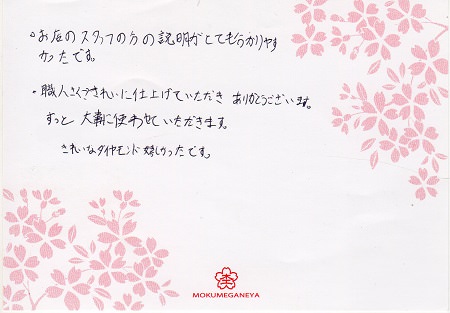 。お店のスタッフの方の説明がとても分かりやす
かったです。
・職人さんできれいに仕上げていただき ありがとうございます。
ずっと 大事に使わせていただきます。
きれいなダイヤモンド 嬉しかったです。
MOKUMEGANEYA